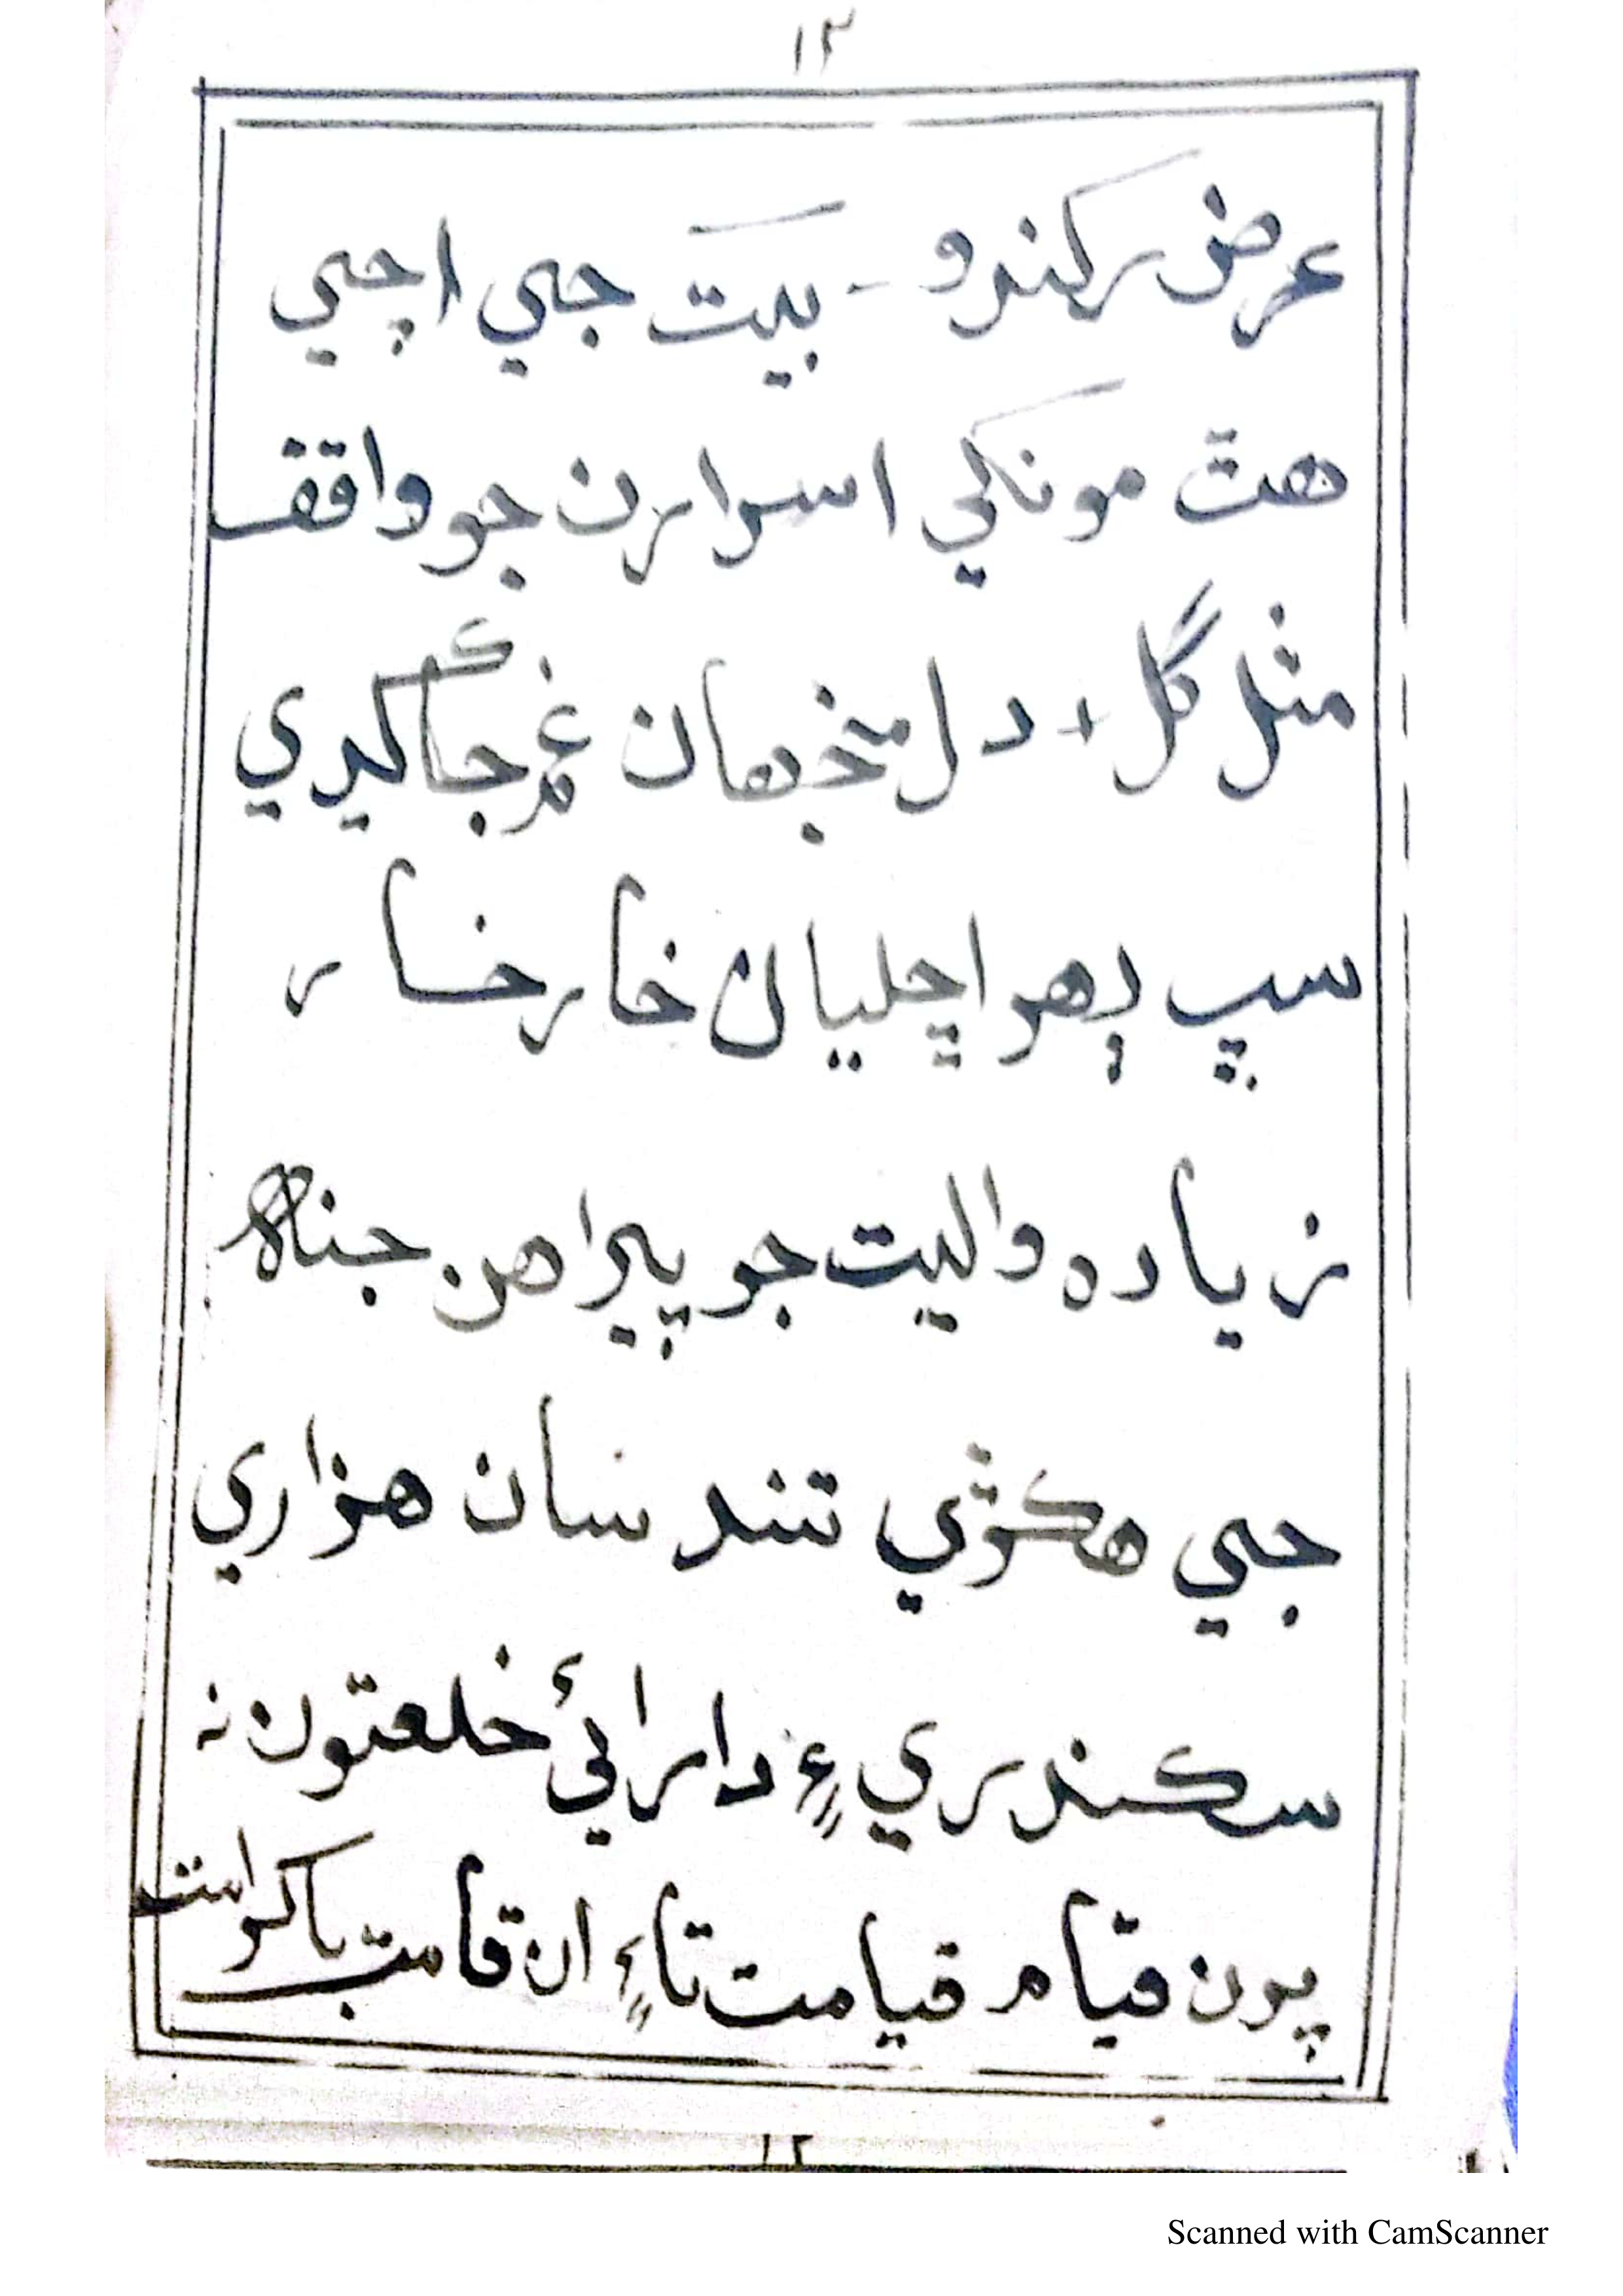 ١٢
عرض رکندو - بيت جي اچي
هتّ مونکي اسرارن جو واقف
مثل گل + دل منجهان غم جاگيري
سڀ ڏهر اڇليان خار خسار
زياده واليت جو پيراهن جناھ
جي هڪوّي تند سان هزاري
سڪندري ۽ دارائيءَ خلعتون نہ
پون قيام قيامت تاءِ ان قامت باکرامت
١٢
Scanned with CamScanner